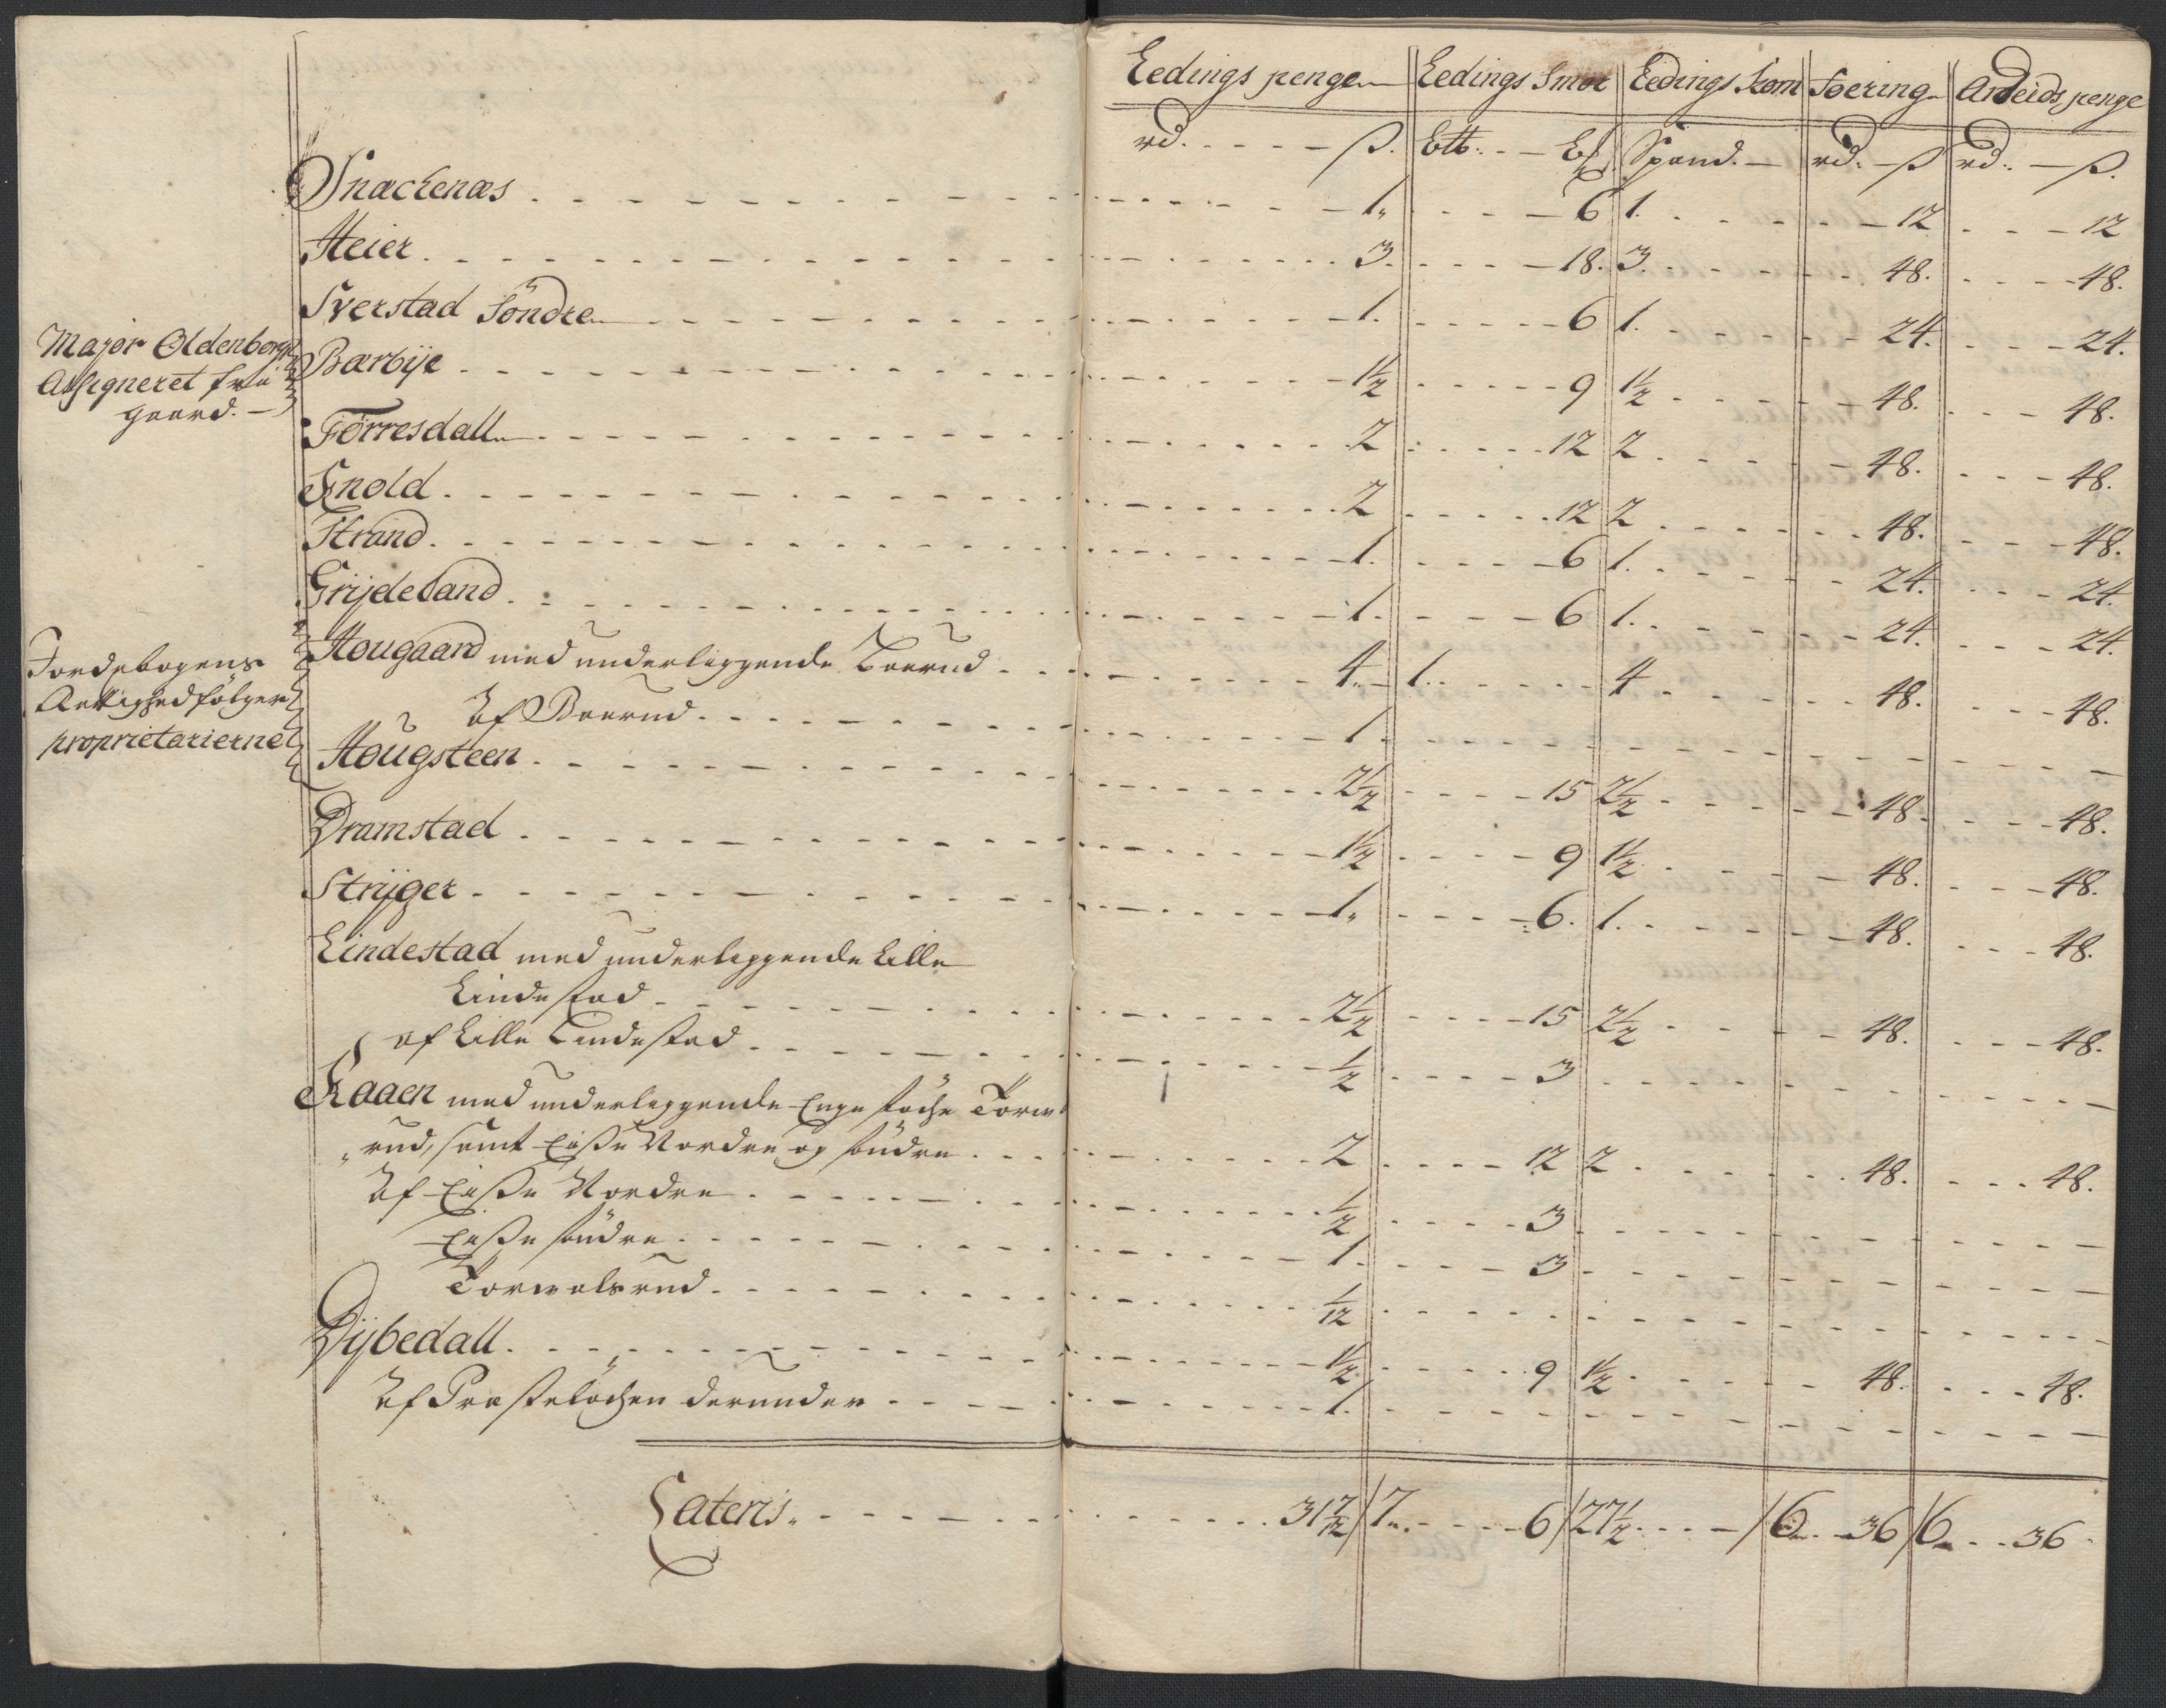 Ledings penge Ledings Smör Ledings Korn Foering Arbeids penge
rd. ß. Ett. L Spand. rd. ß rd. ß.
Snackenæs 1. 6 1. 12 12
Heier 3. 18. 3. 48. 48.
Sverstad Söndre 1. 6 1. 24. 24.
Major Oldenborg
Assigneret frii
gaard.
Bærbÿe 1½ 9 1½ 48. 48.
Torresdall 2 12 2 48. 48.
Knold 2 12 2 48. 48.
Strand 1. 6 1. 24. 24.
Grÿdeland 1. 6 1. 24. 24.
Jordebogens
Rettighed følger
proprietarierne
Hougaard med underliggende 4. 1. 4 48. 48.
Af 1
Hougsteen 2½ 15 2½ 48 48.
Dramstad 1½ 9 1½ 48. 48.
Strÿger 1. 6. 1. 48. 48.
Lindestad med underliggende Lille
Lindestad 2½ 15 2½ 48. 48.
af Lille Lindestad ½ 3
Kaaen med underliggende Torw
rud, samt Nordre og söndre 2 12 2 48. 48.
Af Nordre ½ 3
söndre 1. 3
Torwalsrud 1/12
Dÿbedall 1½ 9 1½ 48. 48.
Af Præstelöchen derunder 1.
Lateris 31 7/12 7 6 27½ 6 36 6 36